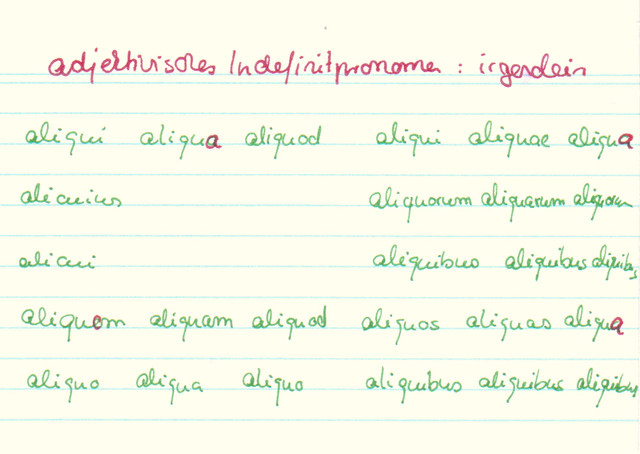 adjektivisches Indefinitpronomen : irgendein
aliqui aliqua aliquod aliqui aliquae aliqua
alicuius aliquorum aliquarum aliquorum
alicui aliquibus aliquibus aliquibus
aliquem aliquam aliquod aliquos aliquas aliqua
aliquo aliqua aliquo aliquibus aliquibus aliquibus